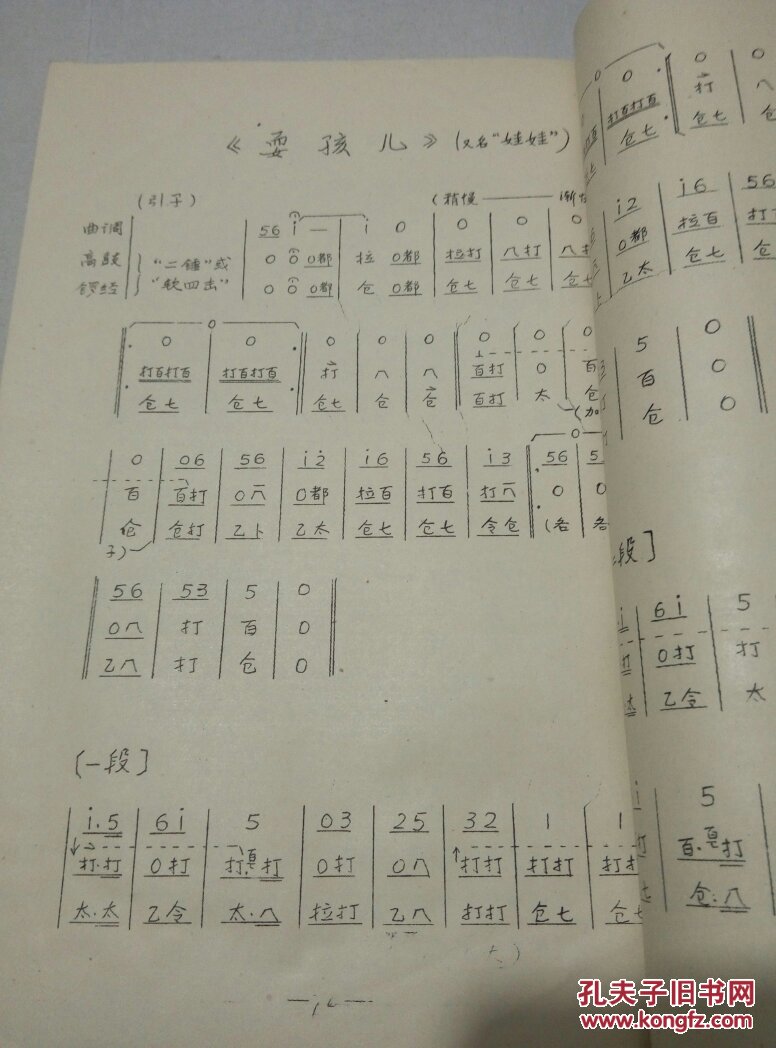 《耍孩儿》(又名“娃娃”)
(引子) (稍慢——渐
曲调 56 i — | i 0 | 0 | 0 | 0
高鼓 “二锤”或 0 0 0都 | 拉 0都 | 拉打 | 八打 | 八
锣经 “软四击” 0 0 0都 | 仓 0都 | 仓七 | 仓七 | 仓七
0
0 | 0 | 0 | 0 | 0 | 0 | 0 | 0
打百打百 | 打百打百 | 打 | 八 | 八 | 百打 | 0 | 百
仓七 | 仓七 | 仓七 | 仓 | 仓 | 百打 | 太 | 仓
(加
0
0 | 06 | 56 | i2 | i6 | 56 | i3 | 56 | 5
百 | 百打 | 0八 | 0都 | 拉百 | 打百 | 打八 | 0 | 0
仓 | 仓打 | 乙卜 | 乙太 | 仓七 | 仓七 | 令仓 | (各 | 各
子)
56 | 53 | 5 | 0
0八 | 打 | 百 | 0
乙八 | 打 | 仓 | 0
[一段]
i.5 | 6i | 5 | 03 | 25 | 32 | 1 | 1
打.打 | 0打 | 打.百打 | 0打 | 0八 | 打打 | 打打 | 打
太.太 | 乙令 | 太.八 | 拉打 | 乙八 | 打打 | 仓七 | 仓七
0
0 | 0 | 0
打百打百 | 打 | 八
仓七 | 仓七 | 仓
i2 | i6 | 56
0都 | 拉百 | 打
乙太 | 仓七 | 仓七
5 | 0
百 | 0
仓 | 0
段]
i | 6i | 5
打 | 0打 | 打
太 | 乙令 | 太
i | 5
打 | 百.百打
七 | 仓.八
孔夫子旧书网
www.kongfz.com